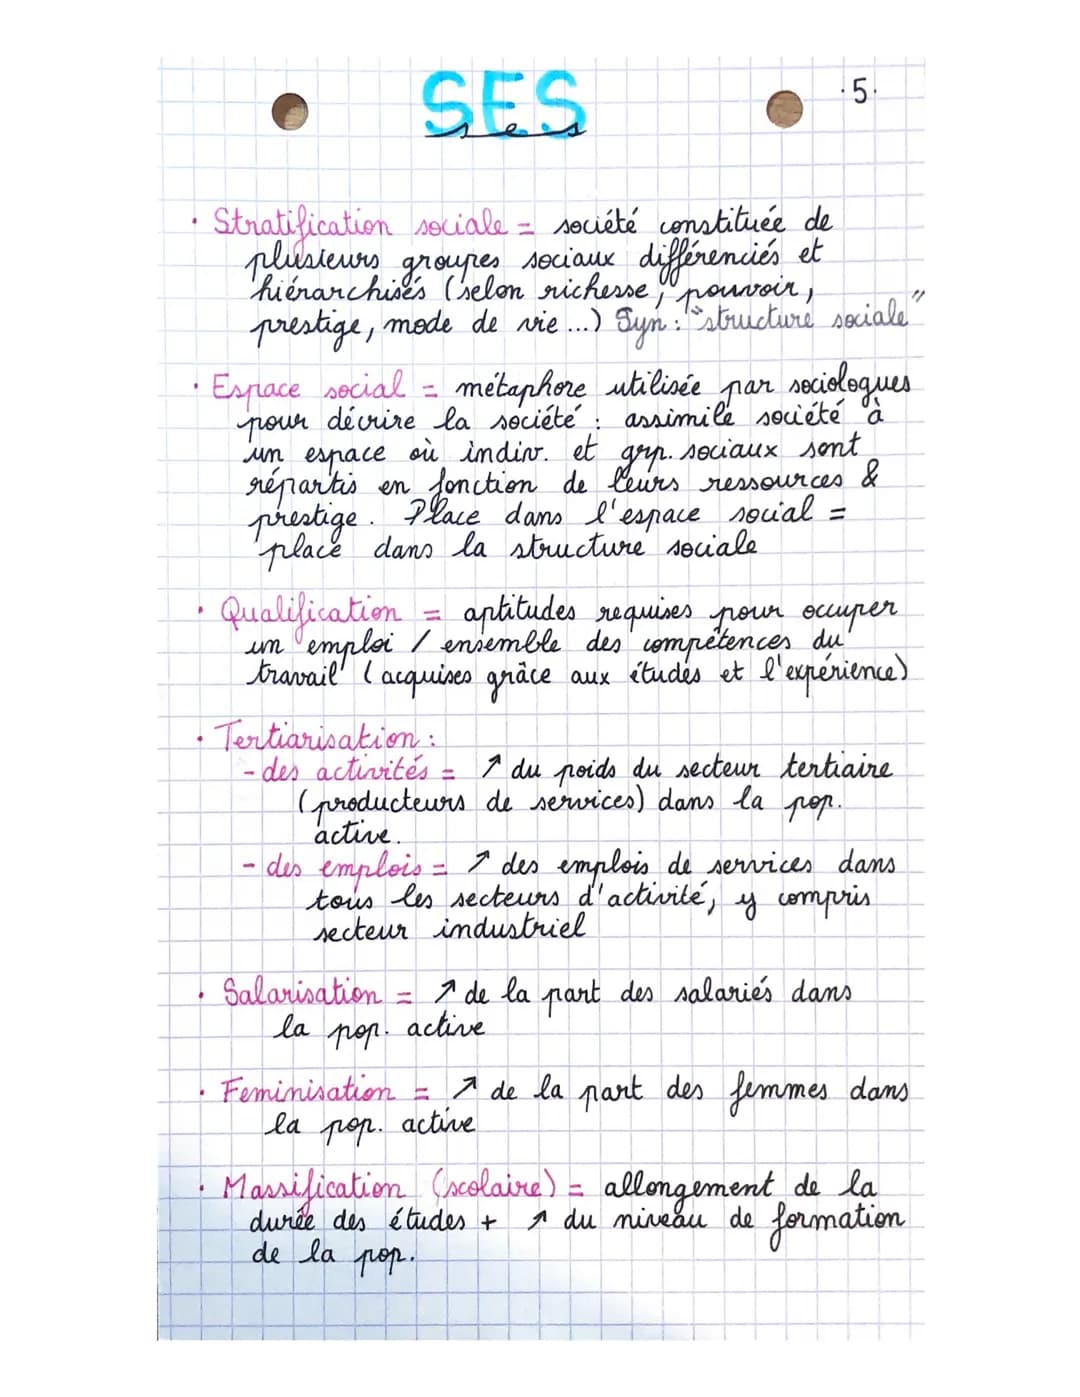 SES
ses
.5.
· Stratification sociale = société constituée de
plusieurs groupes sociaux différenciés et
hiérarchisés (selon richesse, pouvoir,
prestige, mode de vie ...) Syn : "structure sociale"
· Espace social = métaphore utilisée par sociologues
pour décrire la société : assimile société à
un espace où indiv. et grp. sociaux sont
répartis en fonction de leurs ressources &
prestige. Place dans l'espace social =
place dans la structure sociale
· Qualification = aptitudes requises pour occuper
un emploi / ensemble des compétences du
travail (acquises grâce aux études et l'expérience)
· Tertiarisation :
- des activités = ↗ du poids du secteur tertiaire
(producteurs de services) dans la pop.
active.
- des emplois = ↗ des emplois de services dans
tous les secteurs d'activité, y compris
secteur industriel
· Salarisation = ↗ de la part des salariés dans
la pop. active
· Feminisation = ↗ de la part des femmes dans
la pop. active
· Massification (scolaire) = allongement de la
durée des études + ↗ du niveau de formation
de la pop.